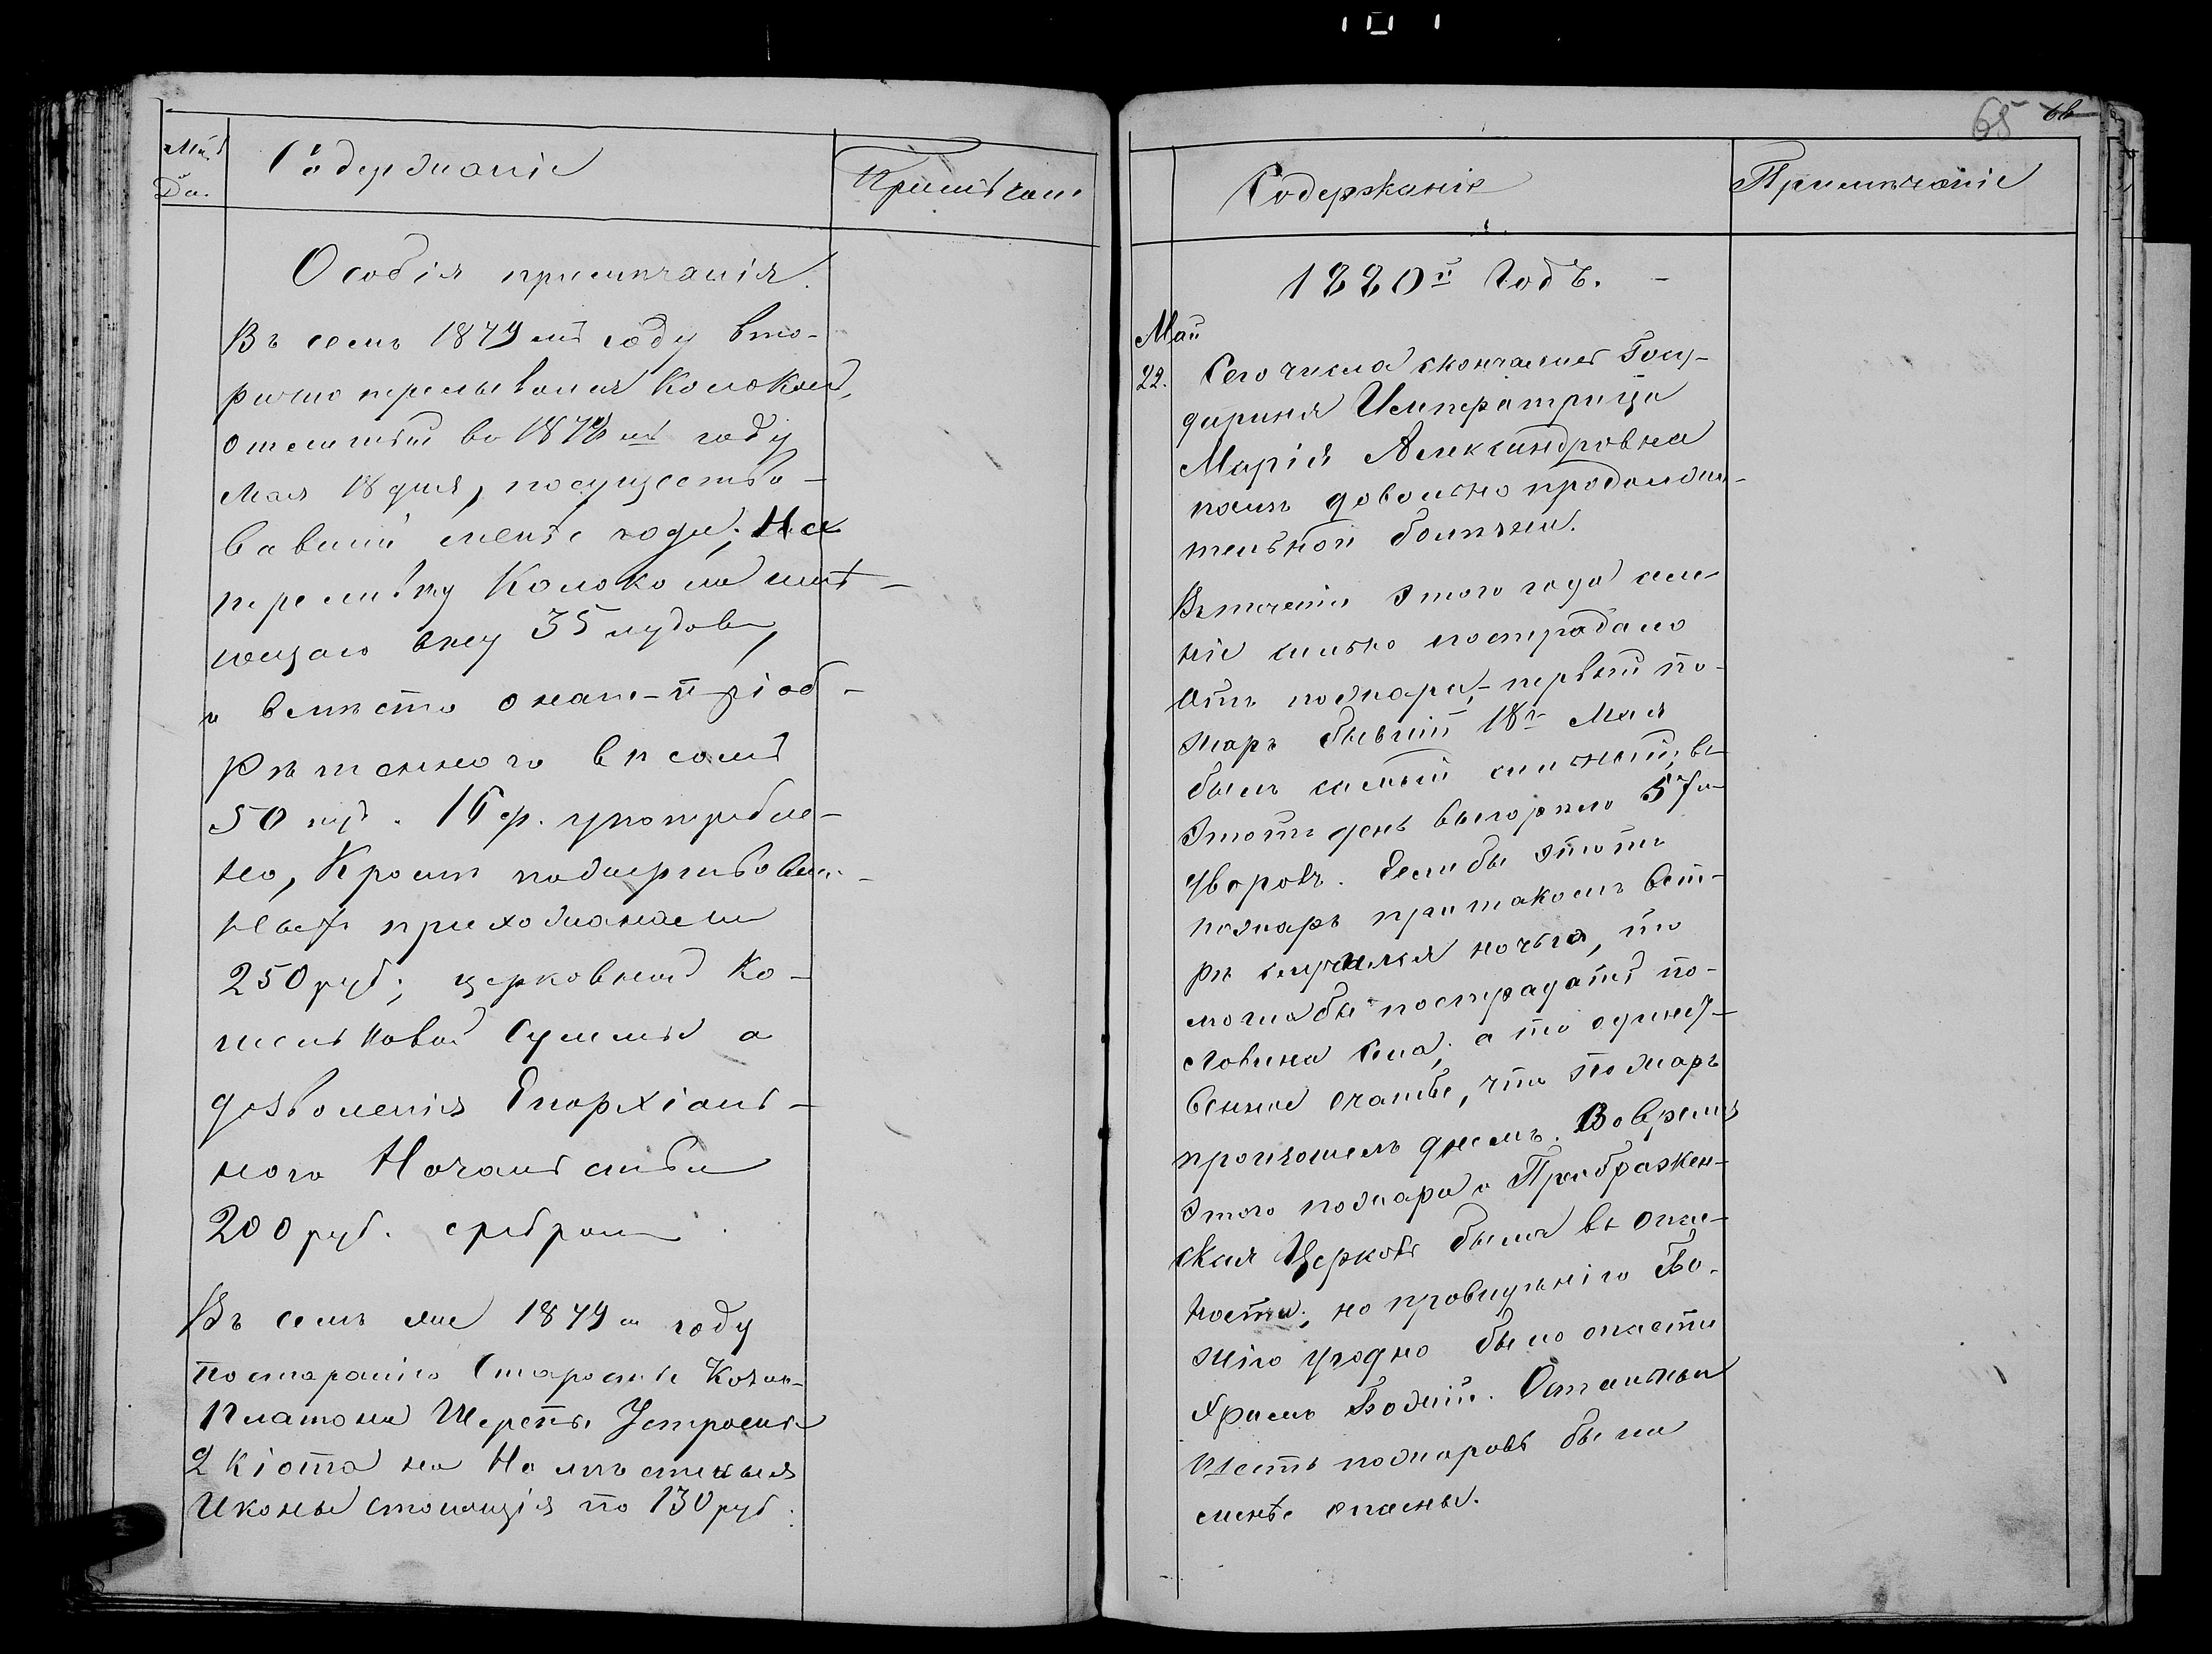 Мц.
Дн.
Содержаніе
Примѣчані
Особія примѣчанія.
Въ семъ 1879мъ году вто-
рично перелываня Колокол,
отлитый во 1878мъ году
Мая 18 дня, посуществo-
вавшій менѣе года; На
переливку Колокола имѣ-
ющаго вѣсу 35 пудовъ,
и вмѣсто онаго-пріоб-
рѣтеннаго вѣсомъ
50 пуд. 16 ф. употребле-
но, Кромѣ пожертвован-
ныхъ прихожанами
250 руб; церковной Ко-
шельковой Суммы а
дозволенія Епархіаль-
ного Начальства
200 руб. сребромъ
Въ семъ же 1879м году
постаранію Старосты Козак.
Платона Шерепы Устроены
2 кіота на На мѣстныя
Иконы стоющія по 130 руб.
65 66
Содержаніе
Примѣчаніе
1880й Годъ.
Май
22. Сего числа скончалась Госу-
дариня Императрица
Марія Александровна
послѣ довольно продолжи-
тельной болѣзни.
Въ теченіи этого года селе-
ніе сильно пострадало
отъ пожара,- первый по-
жаръ бывшій 18го Мая
былъ самый сильный; въ
Этотъ день выгорѣло 57м
дворовъ. Еслибы этотъ
пожаръ притакомъ вѣт-
рѣ случился ночью, то
моглабы пострадать по-
ловина села; а то единст-
венное счатье, что пожаръ
произошелъ днемъ. Во время
Этого пожара и Преображен-
ская Церковь была въ опас-
ности; но провидѣнію Бо-
жію угодно было спасти
Храмъ Божій. Остальныи
шесть пожаровъ были
менѣе опасны.